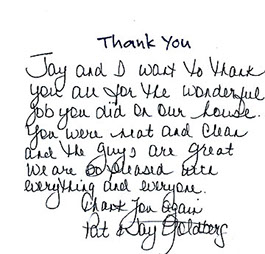 Thank You
Jay and I want to thank
you all for the wonderful
job you did on our house.
You were neat and clean
and the guys are great
We are so pleased with
everything and everyone.
Thank You Again
Pat & Jay Goldberg